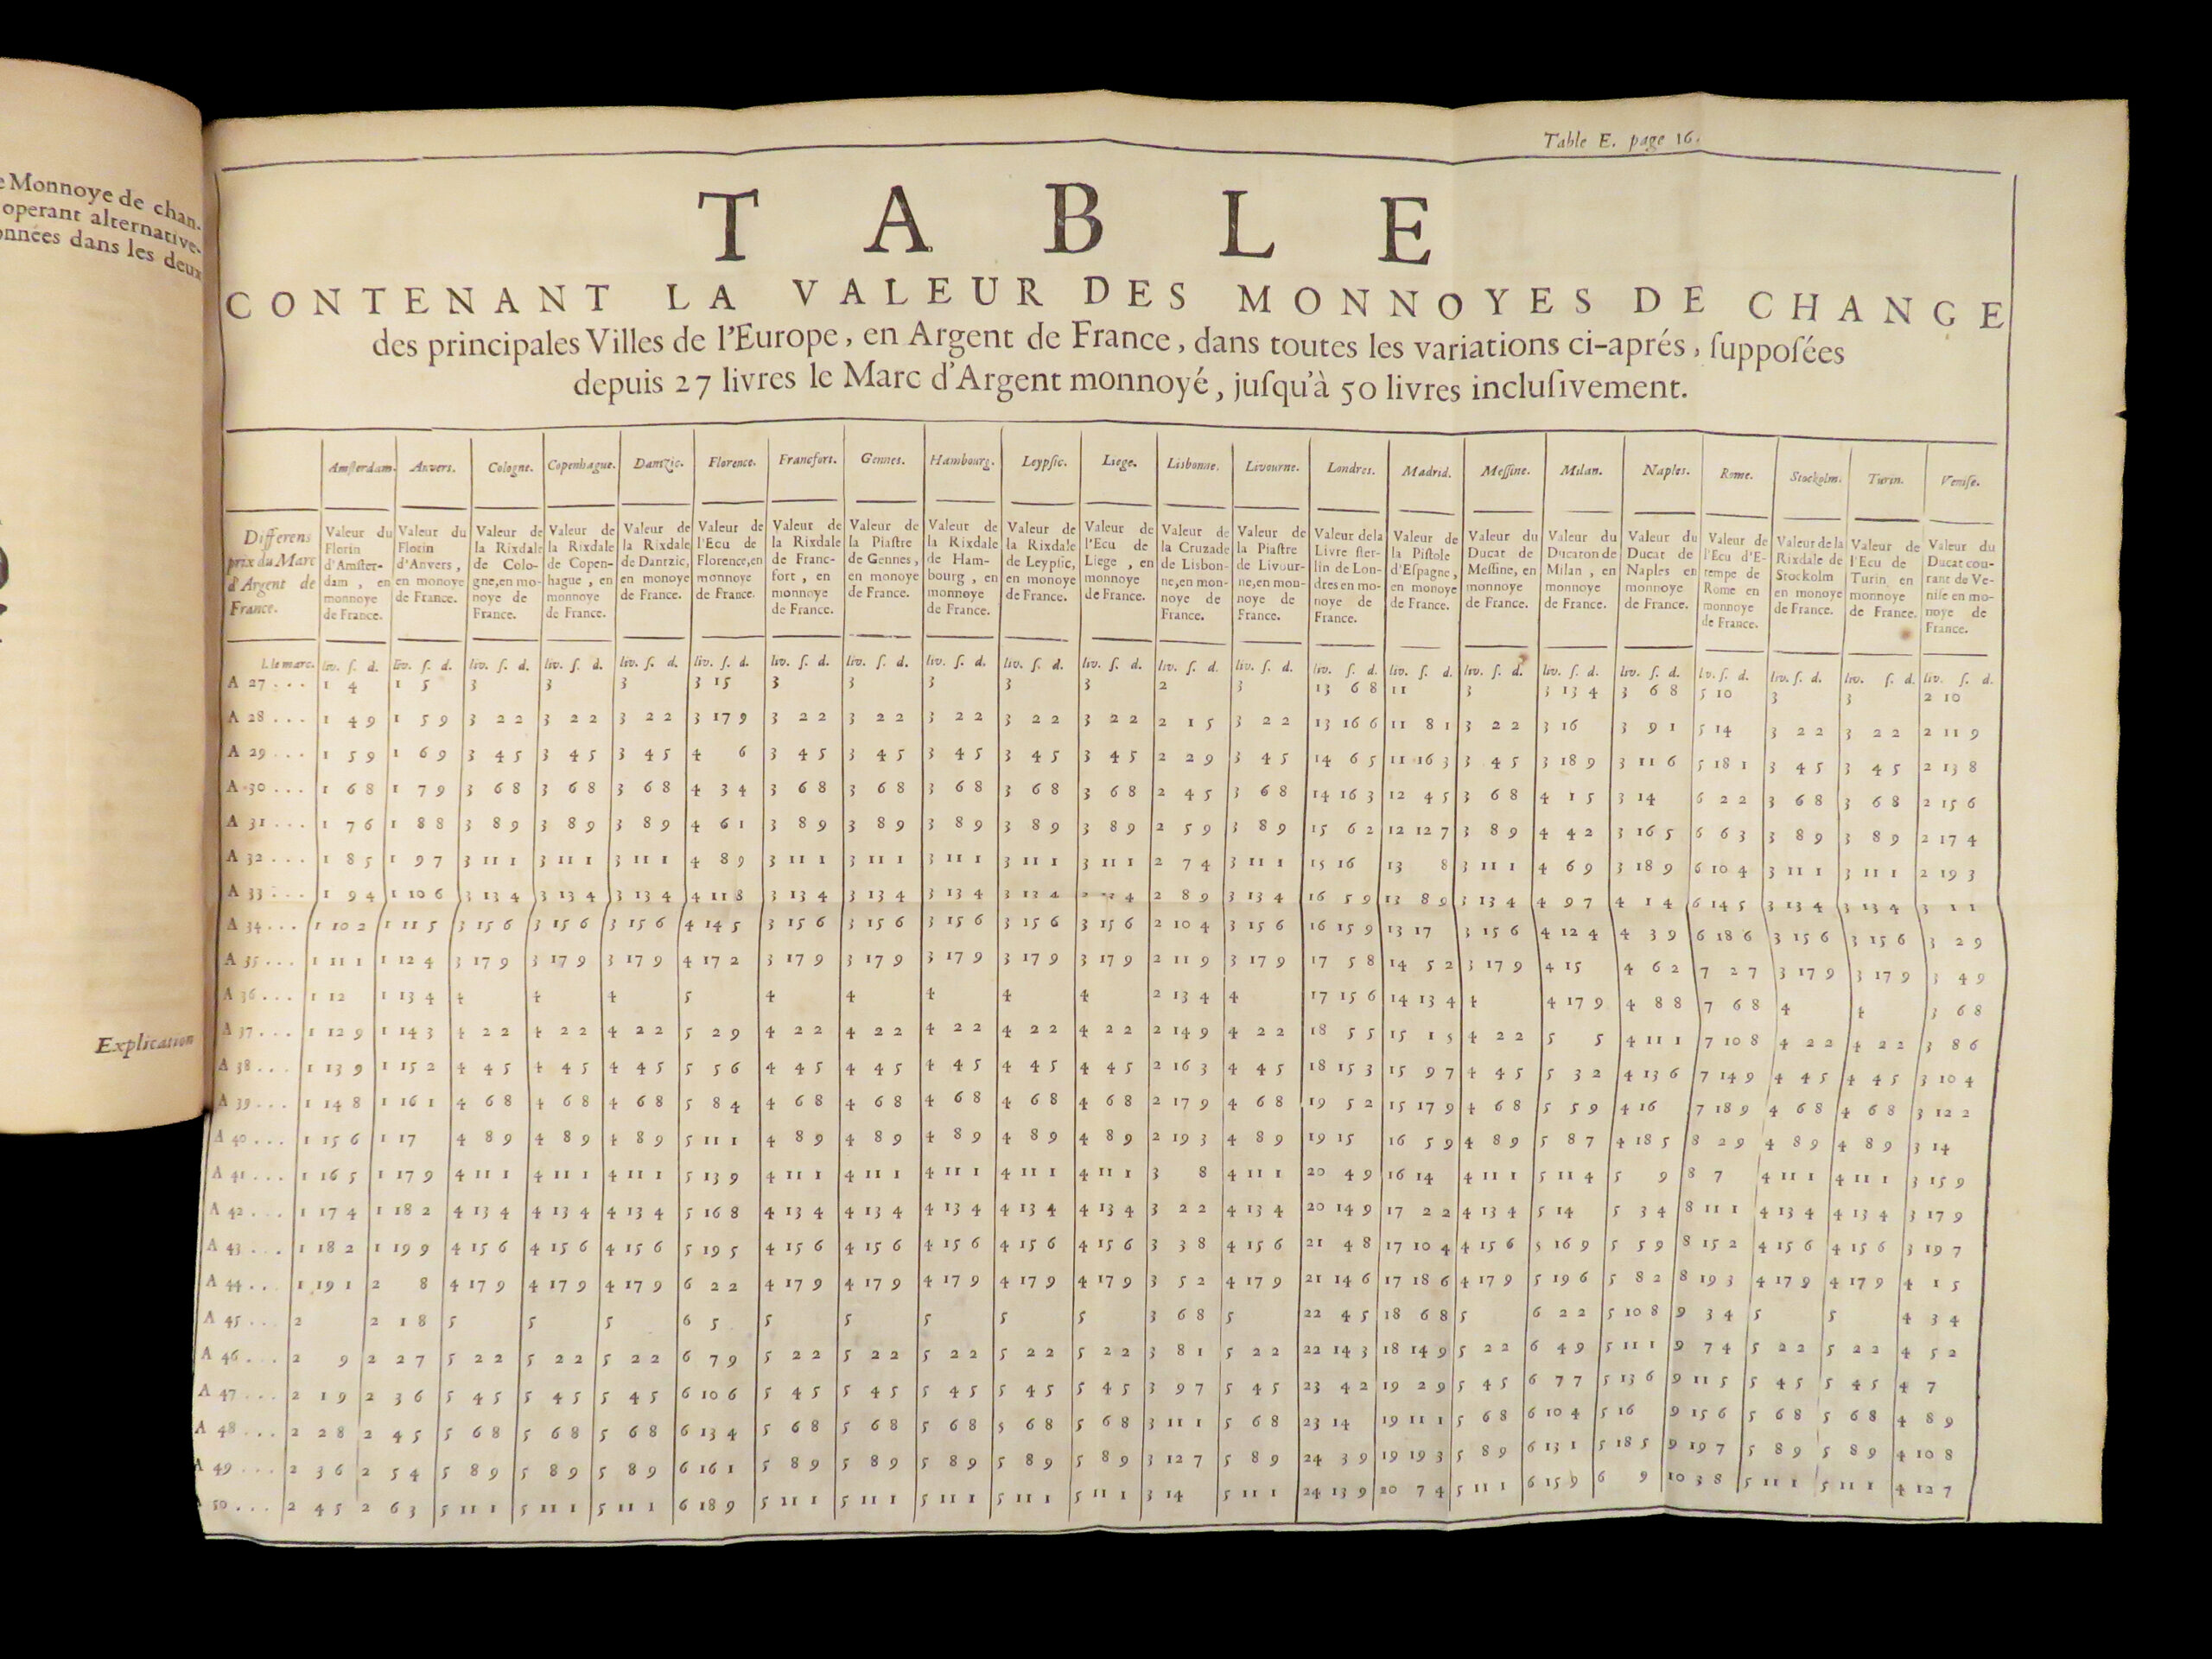 e Monnoye de chan-
operant alternative-
onnées dans les deux
Explication
Table E. page 16.
TABLE
CONTENANT LA VALEUR DES MONNOYES DE CHANGE
des principales Villes de l'Europe, en Argent de France, dans toutes les variations ci-aprés, ſuppoſées
depuis 27 livres le Marc d'Argent monnoyé, juſqu'à 50 livres incluſivement.
Amſterdam. Anvers. Cologne. Copenhague. Dantzic. Florence. Francfort. Gennes. Hambourg. Leypſic. Liege. Lisbonne. Livourne. Londres. Madrid. Meſſine. Milan. Naples. Rome. Stockolm. Turin. Veniſe.
Differens
prix du Marc
d'Argent de
France.
Valeur du
Florin
d'Amſter-
dam, en
monnoye
de France.
Valeur du
Florin
d'Anvers,
en monoye
de France.
Valeur de
la Rixdale
de Colo-
gne,en mo-
noye de
France.
Valeur de
la Rixdale
de Copen-
hague, en
monnoye
de France.
Valeur de
la Rixdale
de Dantzic,
en monoye
de France.
Valeur de
l'Ecu de
Florence,en
monnoye
de France.
Valeur de
la Rixdale
de Franc-
fort, en
monnoye
de France.
Valeur de
la Piaſtre
de Gennes,
en monoye
de France.
Valeur de
la Rixdale
de Ham-
bourg, en
monnoye
de France.
Valeur de
la Rixdale
de Leypſic,
en monoye
de France.
Valeur de
l'Ecu de
Liege, en
monnoye
de France.
Valeur de
la Cruzade
de Lisbon-
ne,en mon-
noye de
France.
Valeur de
la Piaſtre
de Livour-
ne,en mon-
noye de
France.
Valeur de la
Livre ſter-
lin de Lon-
dres en mo-
noye de
France.
Valeur de
la Piſtole
d'Eſpagne,
en monoye
de France.
Valeur du
Ducat de
Meſſine, en
monnoye
de France.
Valeur du
Ducaton de
Milan, en
monnoye
de France.
Valeur du
Ducat de
Naples en
monnoye
de France.
Valeur de
l'Ecu d'E-
tempe de
Rome en
monnoye
de France.
Valeur de la
Rixdale de
Stockolm
en monoye
de France.
Valeur de
l'Ecu de
Turin en
monnoye
de France.
Valeur du
Ducat cou-
rant de Ve-
niſe en mo-
noye de
France.
l. le marc. liv. ſ. d. liv. ſ. d. liv. ſ. d. liv. ſ. d. liv. ſ. d. liv. ſ. d. liv. ſ. d. liv. ſ. d. liv. ſ. d. liv. ſ. d. liv. ſ. d. liv. ſ. d. liv. ſ. d. liv. ſ. d. liv. ſ. d. liv. ſ. d. liv. ſ. d. liv. ſ. d. liv. ſ. d. liv. ſ. d. liv. ſ. d. liv. ſ. d.
A 27... 1 4 1 5 3 3 3 3 15 3 3 3 3 3 2 3 13 6 8 11 3 3 13 4 3 6 8 5 10 3 3 2 10
A 28... 1 4 9 1 5 9 3 2 2 3 2 2 3 2 2 3 17 9 3 2 2 3 2 2 3 2 2 3 2 2 3 2 2 2 1 5 3 2 2 13 16 6 11 8 1 3 2 2 3 16 3 9 1 5 14 3 2 2 3 2 2 2 11 9
A 29... 1 5 9 1 6 9 3 4 5 3 4 5 3 4 5 4 6 3 4 5 3 4 5 3 4 5 3 4 5 3 4 5 2 2 9 3 4 5 14 6 5 11 16 3 3 4 5 3 18 9 3 11 6 5 18 1 3 4 5 3 4 5 2 13 8
A 30... 1 6 8 1 7 9 3 6 8 3 6 8 3 6 8 4 3 4 3 6 8 3 6 8 3 6 8 3 6 8 3 6 8 2 4 5 3 6 8 14 16 3 12 4 5 3 6 8 4 1 5 3 14 6 2 2 3 6 8 3 6 8 2 15 6
A 31... 1 7 6 1 8 8 3 8 9 3 8 9 3 8 9 4 6 1 3 8 9 3 8 9 3 8 9 3 8 9 3 8 9 2 5 9 3 8 9 15 6 2 12 12 7 3 8 9 4 4 2 3 16 5 6 6 3 3 8 9 3 8 9 2 17 4
A 32... 1 8 5 1 9 7 3 11 1 3 11 1 3 11 1 4 8 9 3 11 1 3 11 1 3 11 1 3 11 1 3 11 1 2 7 4 3 11 1 15 16 13 8 3 11 1 4 6 9 3 18 9 6 10 4 3 11 1 3 11 1 2 19 3
A 33... 1 9 4 1 10 6 3 13 4 3 13 4 3 13 4 4 11 8 3 13 4 3 13 4 3 13 4 3 13 4 4 2 8 9 3 13 4 16 5 9 13 8 9 3 13 4 4 9 7 4 1 4 6 14 5 3 13 4 3 13 4 3 1 1
A 34... 1 10 2 1 11 5 3 15 6 3 15 6 3 15 6 4 14 5 3 15 6 3 15 6 3 15 6 3 15 6 3 15 6 2 10 4 3 15 6 16 15 9 13 17 3 15 6 4 12 4 4 3 9 6 18 6 3 15 6 3 15 6 3 2 9
A 35... 1 11 1 1 12 4 3 17 9 3 17 9 3 17 9 4 17 2 3 17 9 3 17 9 3 17 9 3 17 9 3 17 9 2 11 9 3 17 9 17 5 8 14 5 2 3 17 9 4 15 4 6 2 7 2 7 3 17 9 3 17 9 3 4 9
A 36... 1 12 1 13 4 4 4 4 5 4 4 4 4 4 2 13 4 4 17 15 6 14 13 4 4 4 17 9 4 8 8 7 6 8 4 4 3 6 8
A 37... 1 12 9 1 14 3 4 2 2 4 2 2 4 2 2 5 2 9 4 2 2 4 2 2 4 2 2 4 2 2 4 2 2 2 14 9 4 2 2 18 5 5 15 1 5 4 2 2 5 5 4 11 1 7 10 8 4 2 2 4 2 2 3 8 6
A 38... 1 13 9 1 15 2 4 4 5 4 4 5 4 4 5 5 5 6 4 4 5 4 4 5 4 4 5 4 4 5 4 4 5 2 16 3 4 4 5 18 15 3 15 9 7 4 4 5 5 3 2 4 13 6 7 14 9 4 4 5 4 4 5 3 10 4
A 39... 1 14 8 1 16 1 4 6 8 4 6 8 4 6 8 5 8 4 4 6 8 4 6 8 4 6 8 4 6 8 4 6 8 2 17 9 4 6 8 19 5 2 15 17 9 4 6 8 5 5 9 4 16 7 18 9 4 6 8 4 6 8 3 12 2
A 40... 1 15 6 1 17 4 8 9 4 8 9 4 8 9 5 11 1 4 8 9 4 8 9 4 8 9 4 8 9 4 8 9 2 19 3 4 8 9 19 15 16 5 9 4 8 9 5 8 7 4 18 5 8 2 9 4 8 9 4 8 9 3 14
A 41... 1 16 5 1 17 9 4 11 1 4 11 1 4 11 1 5 13 9 4 11 1 4 11 1 4 11 1 4 11 1 4 11 1 3 8 4 11 1 20 4 9 16 14 4 11 1 5 11 4 5 9 8 7 4 11 1 4 11 1 3 15 9
A 42... 1 17 4 1 18 2 4 13 4 4 13 4 4 13 4 5 16 8 4 13 4 4 13 4 4 13 4 4 13 4 4 13 4 3 2 2 4 13 4 20 14 9 17 2 2 4 13 4 5 14 5 3 4 8 11 1 4 13 4 4 13 4 3 17 9
A 43... 1 18 2 1 19 9 4 15 6 4 15 6 4 15 6 5 19 5 4 15 6 4 15 6 4 15 6 4 15 6 4 15 6 3 3 8 4 15 6 21 4 8 17 10 4 4 15 6 5 16 9 5 5 9 8 15 2 4 15 6 4 15 6 3 19 7
A 44... 1 19 1 2 8 4 17 9 4 17 9 4 17 9 6 2 2 4 17 9 4 17 9 4 17 9 4 17 9 4 17 9 3 5 2 4 17 9 21 14 6 17 18 6 4 17 9 5 19 6 5 8 2 8 19 3 4 17 9 4 17 9 4 1 5
A 45... 2 2 1 8 5 5 5 6 5 5 5 5 5 5 3 6 8 5 22 4 5 18 6 8 5 6 2 2 5 10 8 9 3 4 5 5 4 3 4
A 46... 2 9 2 2 7 5 2 2 5 2 2 5 2 2 6 7 9 5 2 2 5 2 2 5 2 2 5 2 2 5 2 2 3 8 1 5 2 2 22 14 3 18 14 9 5 2 2 6 4 9 5 11 1 9 7 4 5 2 2 5 2 2 4 5 2
A 47... 2 1 9 2 3 6 5 4 5 5 4 5 5 4 5 6 10 6 5 4 5 5 4 5 5 4 5 5 4 5 5 4 5 3 9 7 5 4 5 23 4 2 19 2 9 5 4 5 6 7 7 5 13 6 9 11 5 5 4 5 5 4 5 4 7
A 48... 2 2 8 2 4 5 5 6 8 5 6 8 5 6 8 6 13 4 5 6 8 5 6 8 5 6 8 5 6 8 5 6 8 3 11 1 5 6 8 23 14 19 11 1 5 6 8 6 10 4 5 16 9 15 6 5 6 8 5 6 8 4 8 9
A 49... 2 3 6 2 5 4 5 8 9 5 8 9 5 8 9 6 16 1 5 8 9 5 8 9 5 8 9 5 8 9 5 8 9 3 12 7 5 8 9 24 3 9 19 19 3 5 8 9 6 13 1 5 18 5 9 19 7 5 8 9 5 8 9 4 10 8
50... 2 4 5 2 6 3 5 11 1 5 11 1 5 11 1 6 18 9 5 11 1 5 11 1 5 11 1 5 11 1 5 11 1 3 14 5 11 1 24 13 9 20 7 4 5 11 1 6 15 9 6 9 10 3 8 5 11 1 5 11 1 4 12 7